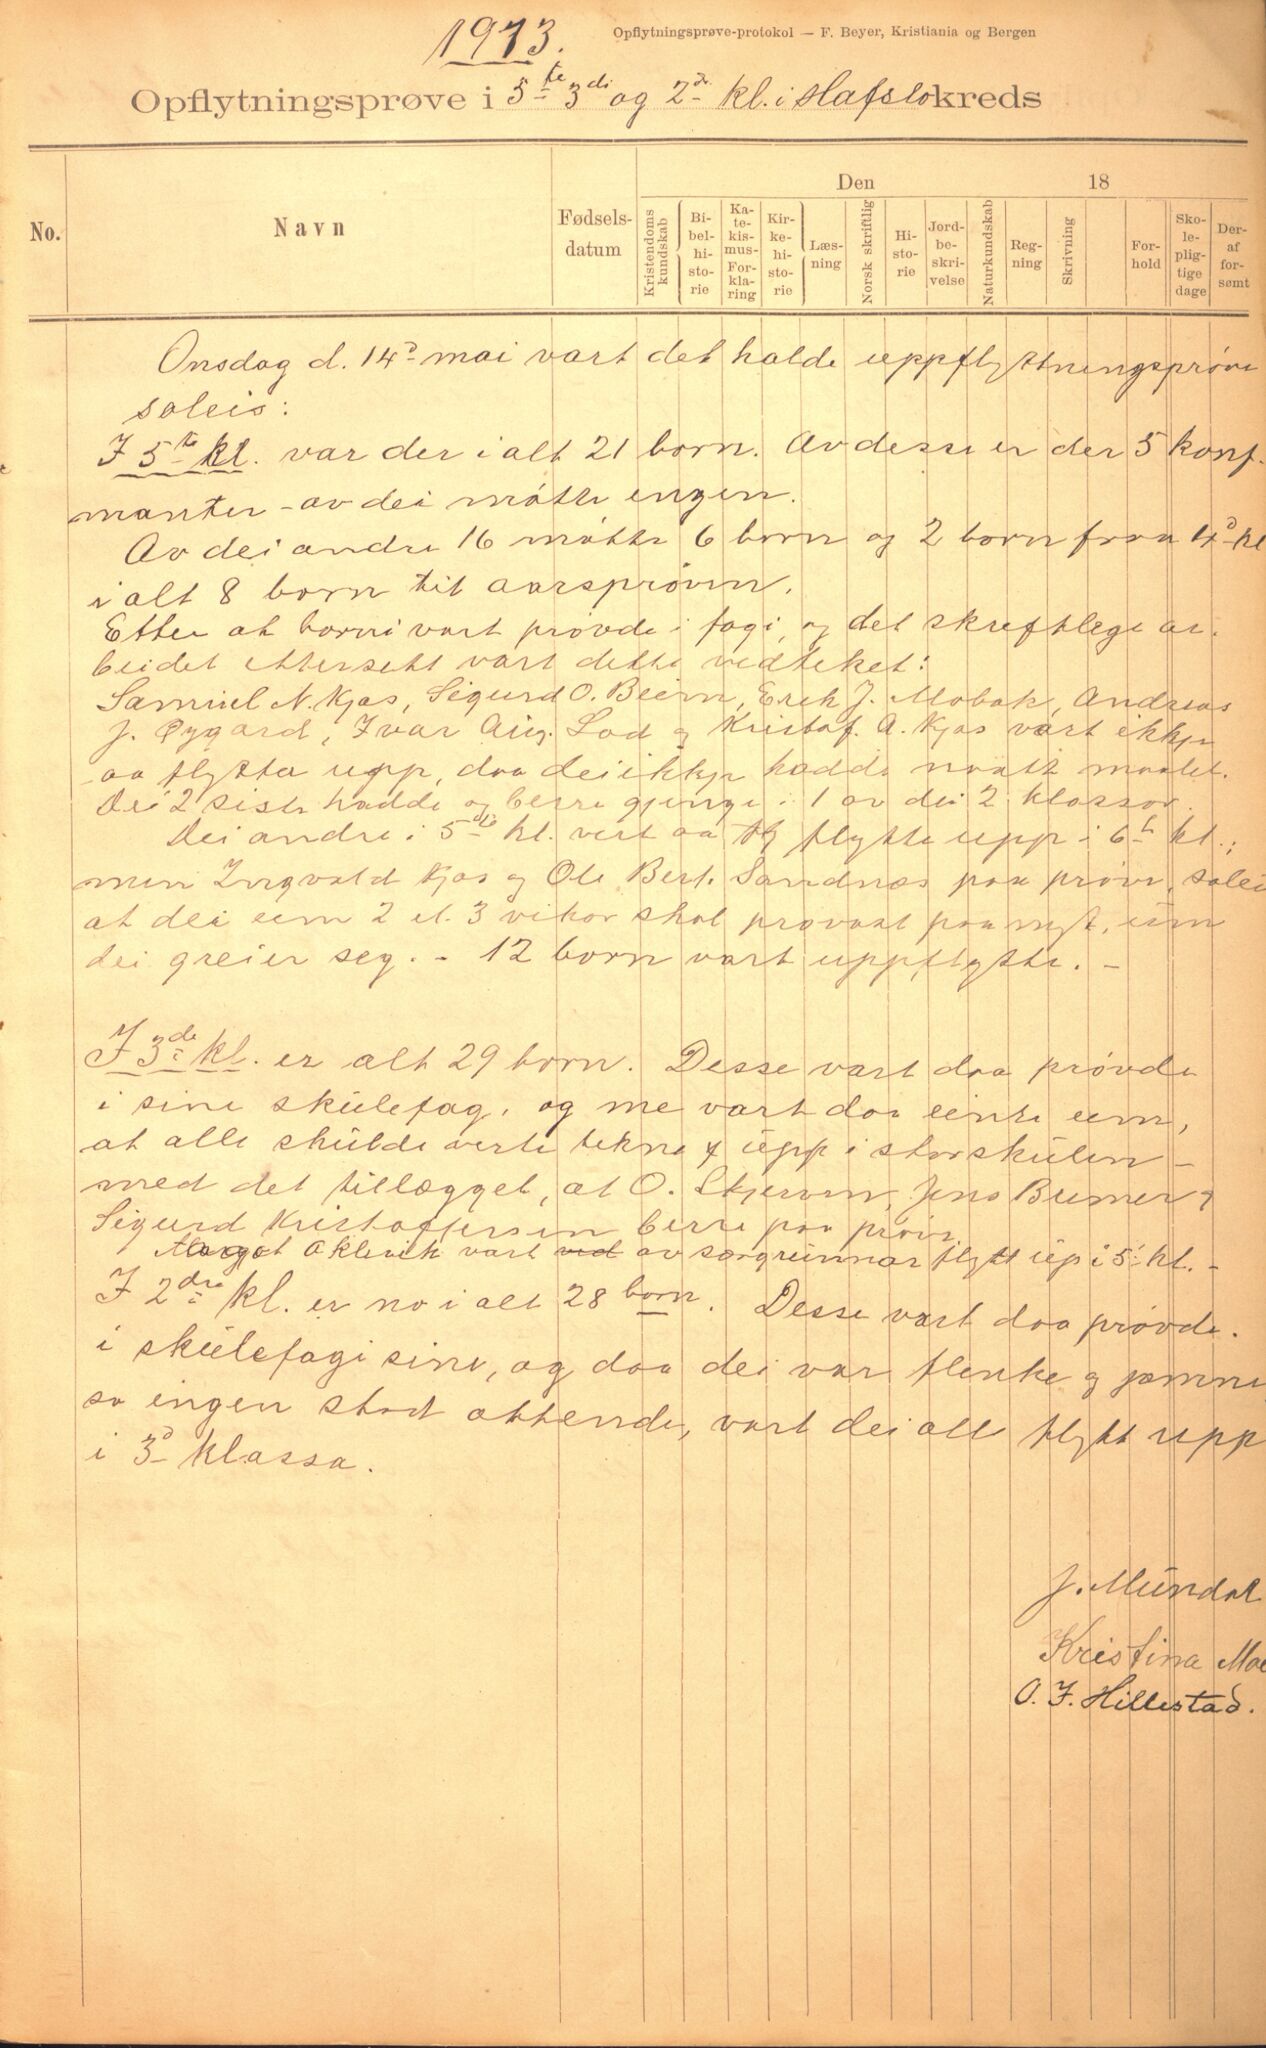 1913.
Opflytningsprøve-protokol — F. Beyer, Kristiania og Bergen
Opflytningsprøve i 5te 3di og 2dr kl. i Hafslo kreds
No.
Navn
Fødsels-
datum
Den 18
Kristendoms
kundskab
Bi-
bel-
hi-
sto-
rie
Ka-
te-
kis-
mus-
For-
kla-
ring
Kir-
ke-
hi-
sto-
rie
Læs-
ning
Norsk skriftlig
Hi-
sto-
rie
Jord-
be-
skri-
velse
Naturkundskab
Reg-
ning
Skrivning
For-
hold
Sko-
le-
plig-
tige
dage
Der-
af
for-
sømt
Onsdag d. 14d mai vart det halde uppflyttningsprøve
soleis:
I 5te kl. var der i alt 21 born. Av desse er der 5 konf.
manter - av dei møtte engen.
Av dei andre 16 møtte 6 born og 2 born fraa 4d kl
i alt 8 born til aarsprøven.
Etter at borni vart prøvde i fagi, og det skreftlege ar-
beidet ettersett vart dette vedteket:
Samuel N. Kjos, Sigurd O. Beim, Erik J. Mobak, Andreas
J. Øygard, Ivar Aug. Lad og Kristof. A. Kjos vart ikkje
aa flytta upp, daa dei ikkje hadde naatt maalet.
Dei 2 siste hadde og berre gjenge i 1 av dei 2 klassor.
Dei andre i 5te kl. vert aa flytte upp i 6te kl.;
men Ingvald Kjos og Ole Bert. Sandnæs paa prøve, solei
at dei um 2 el. 3 vikor skal prøvast paa nyt, um
dei greier seg. - 12 born vart uppflytte. -
I 3de kl. er alt 29 born. Desse vart daa prøvde
i sine skulefag, og me vart daa einte um,
at alle skulde verte tekne upp i storskulen -
med det tillegget, at O. Skjerven, Jens Bremer og
Sigurd Kristoffersen berre paa prøve.
Margot Oklevik vart ved av sorgrunnar flytt up i 5. kl. -
I 2dre kl. er no i alt 28 born. Desse vart daa prøvde.
i skulefagi sine, og daa dei var flenke og jamne,
so ingen stod attende, vart dei alle flytt upp
i 3d klassa.
J. Mundal
Kristina Moe
O. J. Hillestad.